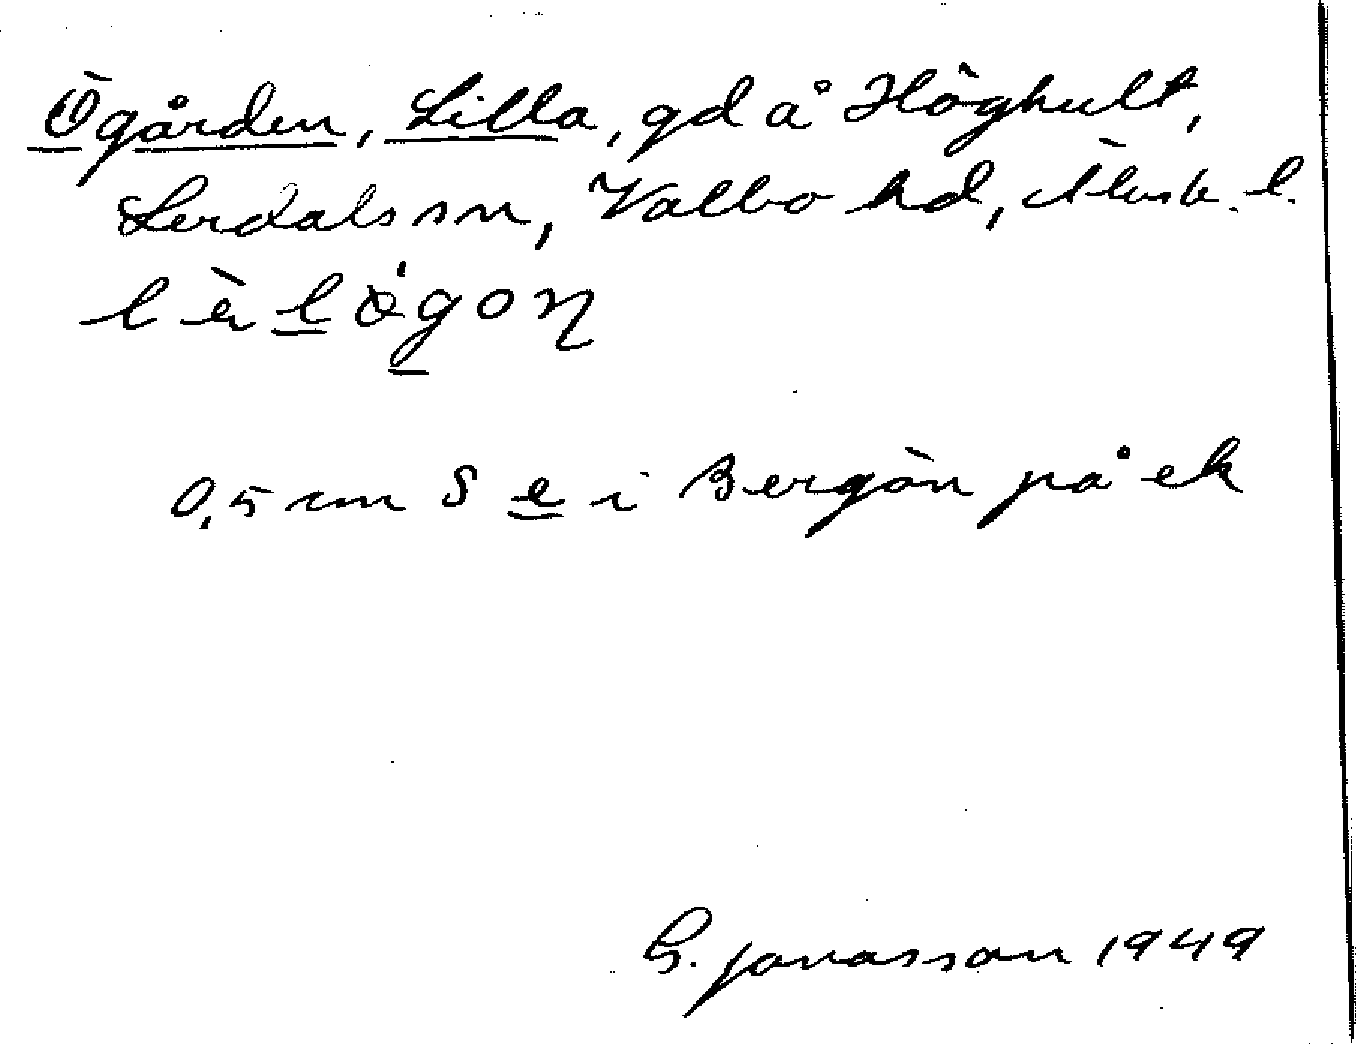 Ögården, Lilla, gd å Höghult,
Lerdals sn, Valbo hd, Älvsb. l.
0,5 cm S e i Bergön på ek
G. Jonasson 1949